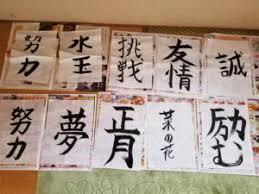 努力
水玉
挑戦
友情
誠
努力
夢
正月
菜の花
励む